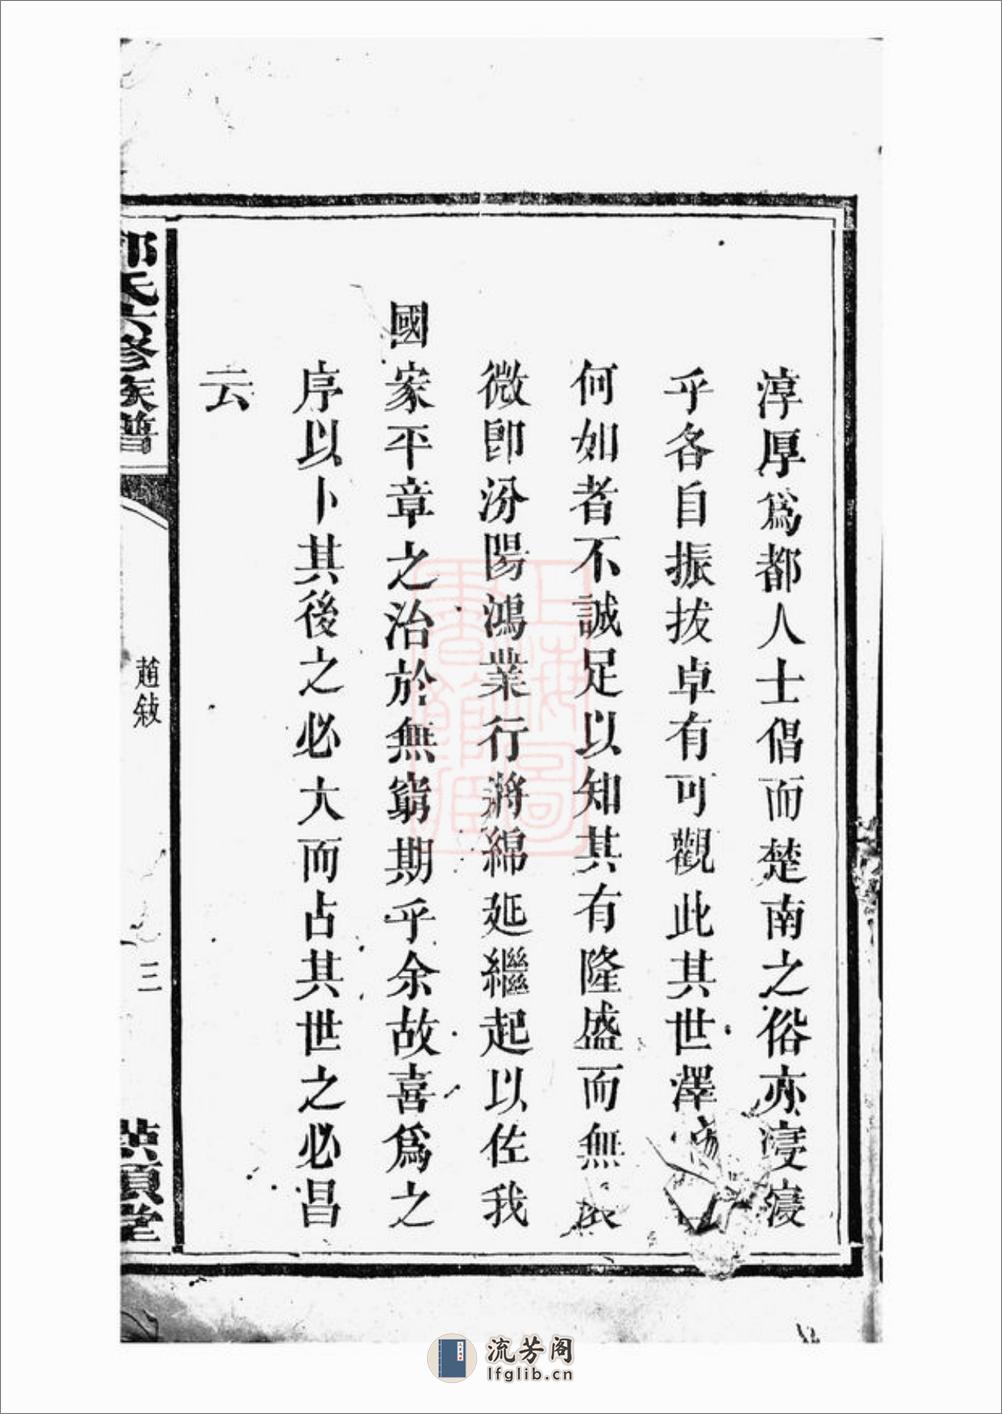 淳厚爲都人士倡而楚南之俗亦寖寖
乎各自振拔卓有可觀此其世澤
何如者不誠足以知其有隆盛而無衰
微卽汾陽鴻業行將綿延繼起以佐我
國家平章之治於無窮期乎余故喜爲之
序以卜其後之必大而占其世之必昌
云
氏六修族譜
趙敍
三
堂
上海圖書館藏
流芳阁
lfglib.cn